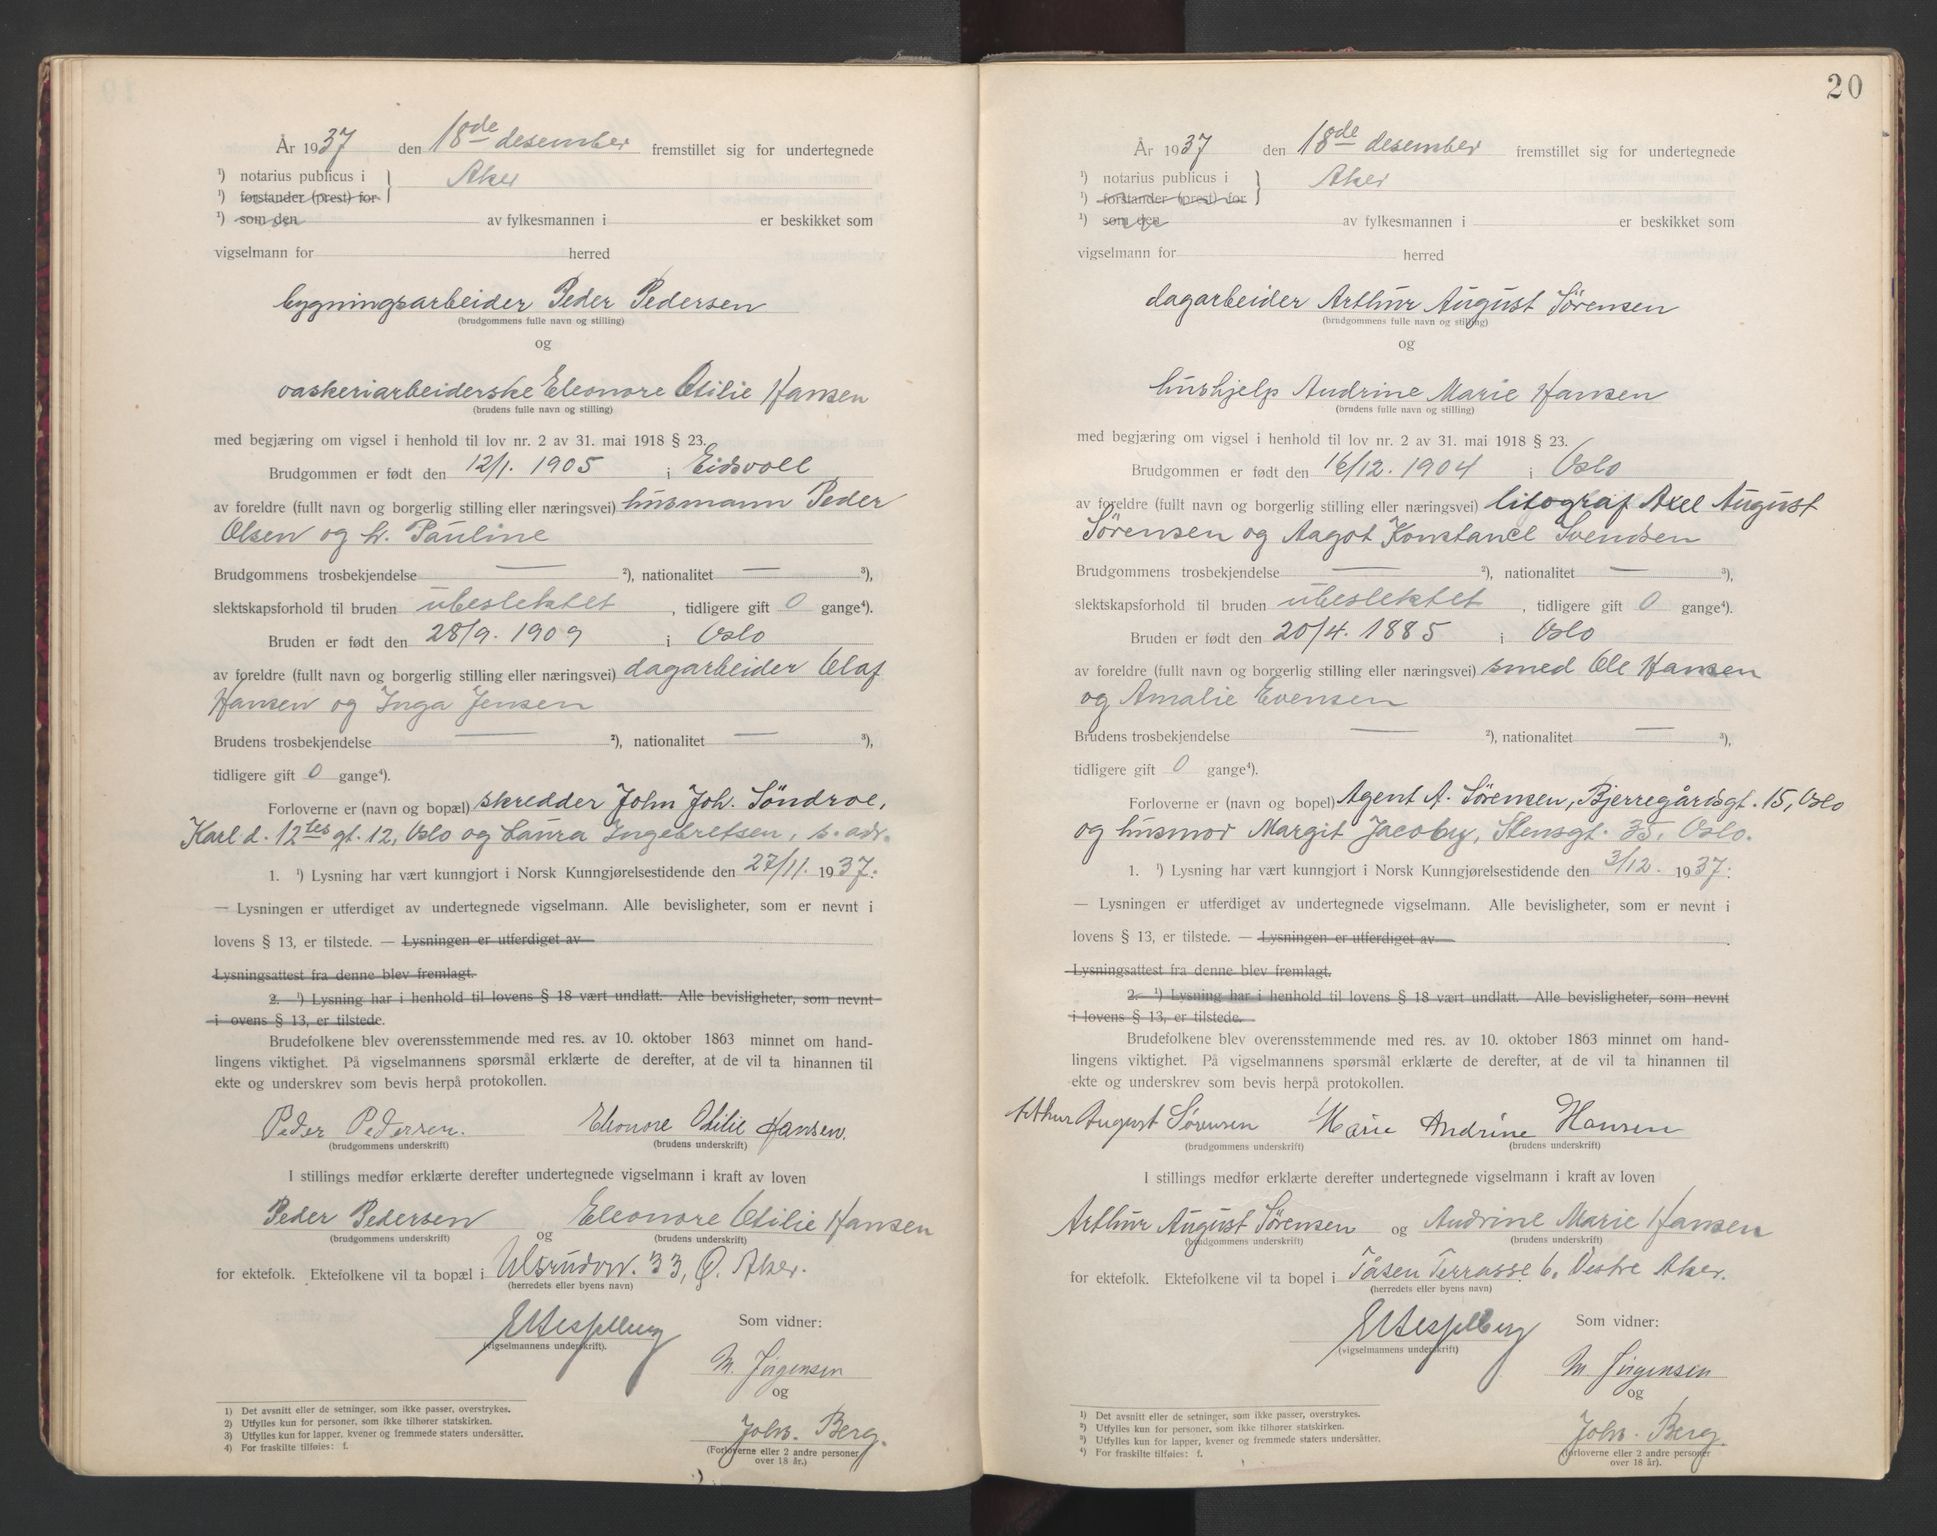 År 1937 den 18de desember fremstillet sig for undertegnede
¹) notarius publicus i } Aker
¹) forstander (prest) for
¹) som den av fylkesmannen i er beskikket som
vigselmann for herred
bygningsarbeider Peder Pedersen
(brudgommens fulle navn og stilling)
og
vaskeriarbeiderske Eleonore Otilie Hansen
(brudens fulle navn og stilling)
med begjæring om vigsel i henhold til lov nr. 2 av 31. mai 1918 § 23.
Brudgommen er født den 12/1. 1905 i Eidsvoll
av foreldre (fullt navn og borgerlig stilling eller næringsvei) husmann Peder
Olsen og h. Pauline
Brudgommens trosbekjendelse — ²), nationalitet — ³),
slektskapsforhold til bruden ubeslektet, tidligere gift 0 gange⁴).
Bruden er født den 28/9. 1909 i Oslo
av foreldre (fullt navn og borgerlig stilling eller næringsvei) dagarbeider Olaf
Hansen og Inga Jensen
Brudens trosbekjendelse — ²), nationalitet — ³),
tidligere gift 0 gange⁴).
Forloverne er (navn og bopæl) skredder John Joh. Söndroe,
Karl d. 12tes gt. 12, Oslo og Laura Ingebretsen, s. adr.
1. ¹) Lysning har vært kunngjort i Norsk Kunngjørelsestidende den 27/11. 1937:
— Lysningen er utferdiget av undertegnede vigselmann. Alle bevisligheter, som er nevnt i
lovens § 13, er tilstede. — Lysningen er utferdiget av
Lysningsattest fra denne blev fremlagt.
2. ¹) Lysning har i henhold til lovens § 18 vært undlatt. Alle bevisligheter, som nevnt
i ovens § 13, er tilstede.
Brudefolkene blev overensstemmende med res. av 10. oktober 1863 minnet om hand-
lingens viktighet. På vigselmannens spørsmål erklærte de derefter, at de vil ta hinannen til
ekte og underskrev som bevis herpå protokollen.
Peder Pedersen. Eleonore Otilie Hansen.
(brudgommens underskrift) (brudens underskrift)
I stillings medfør erklærte derefter undertegnede vigselmann i kraft av loven
Peder Pedersen og Eleonore Otilie Hansen
(brudgommens underskrift) (brudens underskrift)
for ektefolk. Ektefolkene vil ta bopæl i Ulsrudvn. 33, Ø. Aker.
(herredets eller byens navn)
Som vidner:
(vigselmannens underskrift).
M. Jørgensen
og
Johs. Berg.
(Forloverne eller 2 andre personer
over 18 år.)
1) Det avsnitt eller de setninger, som ikke passer, overstrykes.
2) Utfylles kun for personer, som ikke tilhører statskirken.
3) Utfylles kun for lapper, kvener og fremmede staters undersåtter.
4) For fraskilte tilføies: f.
20
År 1937 den 18de desember fremstillet sig for undertegnede
¹) notarius publicus i } Aker
¹) forstander (prest) for
¹) som den av fylkesmannen i er beskikket som
vigselmann for herred
dagarbeider Arthur August Sørensen
(brudgommens fulle navn og stilling)
og
hushjelp Andrine Marie Hansen
(brudens fulle navn og stilling)
med begjæring om vigsel i henhold til lov nr. 2 av 31. mai 1918 § 23.
Brudgommen er født den 16/12. 1904 i Oslo
av foreldre (fullt navn og borgerlig stilling eller næringsvei) litograf Axel August
Sørensen og Aagot Konstance Svendsen
Brudgommens trosbekjendelse — ²), nationalitet — ³),
slektskapsforhold til bruden ubeslektet, tidligere gift 0 gange⁴).
Bruden er født den 20/4. 1885 i Oslo
av foreldre (fullt navn og borgerlig stilling eller næringsvei) smed Ole Hansen
og Amalie Evensen
Brudens trosbekjendelse — ²), nationalitet — ³),
tidligere gift 0 gange⁴).
Forloverne er (navn og bopel) Agent A. Sørensen, Bjerregårdsgt. 15, Oslo
og husmor Margit Jacoby, Stensgt. 35, Oslo.
1. ¹) Lysning har vært kunngjort i Norsk Kunngjørelsestidende den 3/12. 1937:
— Lysningen er utferdiget av undertegnede vigselmann. Alle bevisligheter, som er nevnt i
lovens § 13, er tilstede. — Lysningen er utferdiget av
Lysningsattest fra denne blev fremlagt.
2. ¹) Lysning har i henhold til lovens § 18 vært undlatt. Alle bevisligheter, som nevnt
i lovens § 13, er tilstede.
Brudefolkene blev overensstemmende med res. av 10. oktober 1863 minnet om hand-
lingens viktighet. På vigselmannens spørsmål erklærte de derefter, at de vil ta hinannen til
ekte og underskrev som bevis herpå protokollen.
Arthur August Sørensen Marie Andrine Hansen
(brudgommens underskrift) (brudens underskrift)
I stillings medfør erklærte derefter undertegnede vigselmann i kraft av loven
Arthur August Sørensen og Andrine Marie Hansen
(brudgommens underskrift) (brudens underskrift)
for ektefolk. Ektefolkene vil ta bopel i Tåsen Terrasse 6, Vestre Aker.
(herredets eller byens navn)
Som vidner:
(vigselmannens underskrift)
M. Jørgensen
og
Johs. Berg.
(forloverne eller 2 andre personer
over 18 år).
¹) Det avsnitt eller de setninger, som ikke passer, overstrykes.
²) Utfylles kun for personer, som ikke tilhører statskirken.
³) Utfylles kun for lapper, kvener og fremmede staters undersåtter.
⁴) For fraskilte tilføies: f.